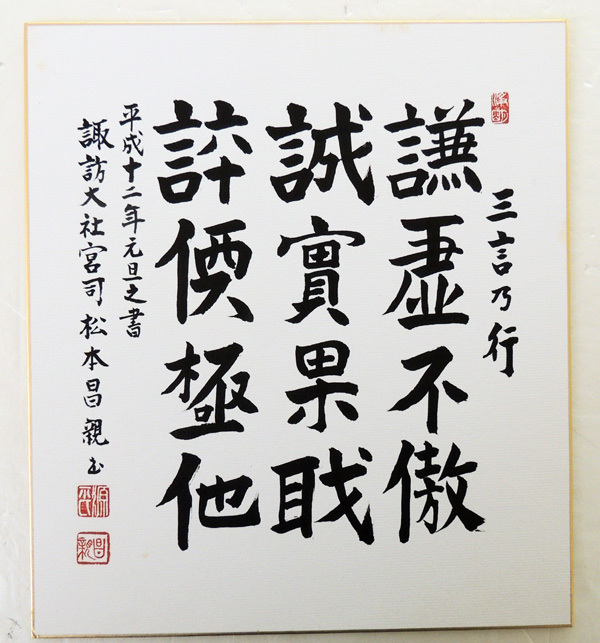 三言乃行
謙虚不傲
誠實果戝
評價極他
平成十二年元旦之書
諏訪大社宮司松本昌親書